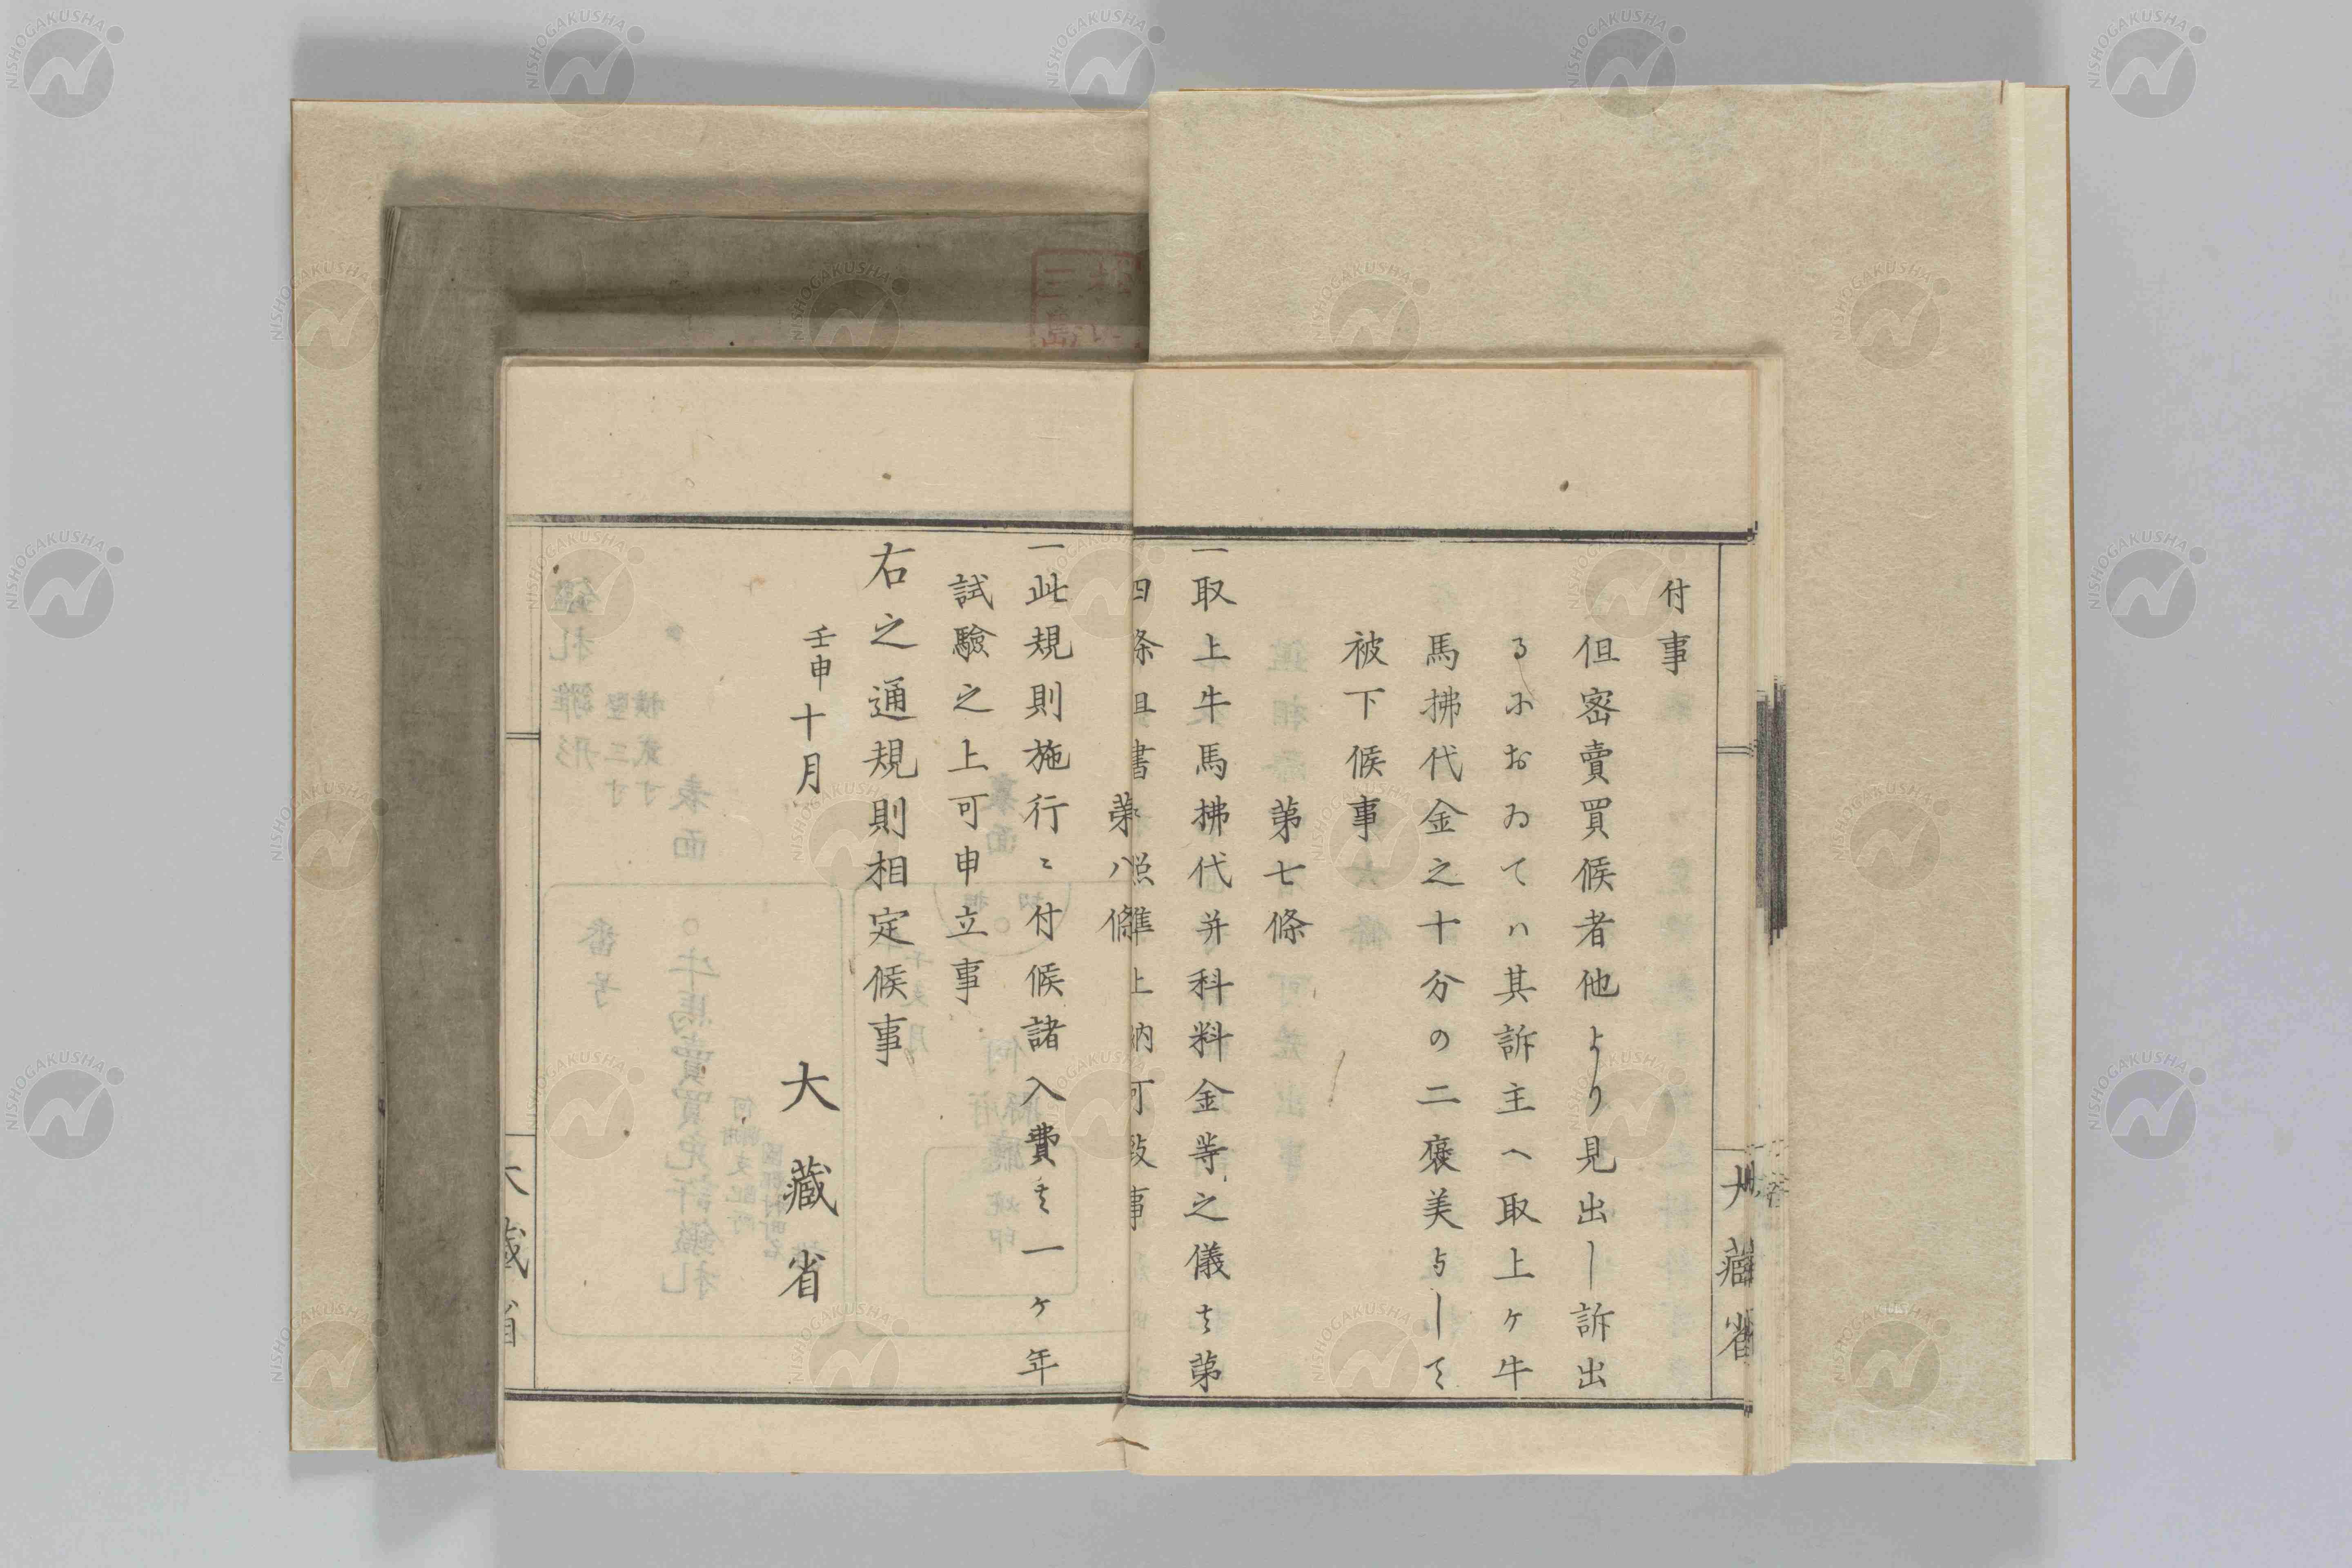 付事
但密賣買候者他より見出し訴出
るにおゐてハ其訴主へ取上ケ牛
馬拂代金之十分の二褒美与して
被下候事
第七條
一取上牛馬拂代并科料金等之儀ハ第
四條但書照準上納可致事
第八條
一此規則施行ニ付候諸入費ハ一ケ年
試驗之上可申立事
右之通規則相定候事
壬申十月
大藏省
大藏省
大藏省
NISHOGAKUSHA